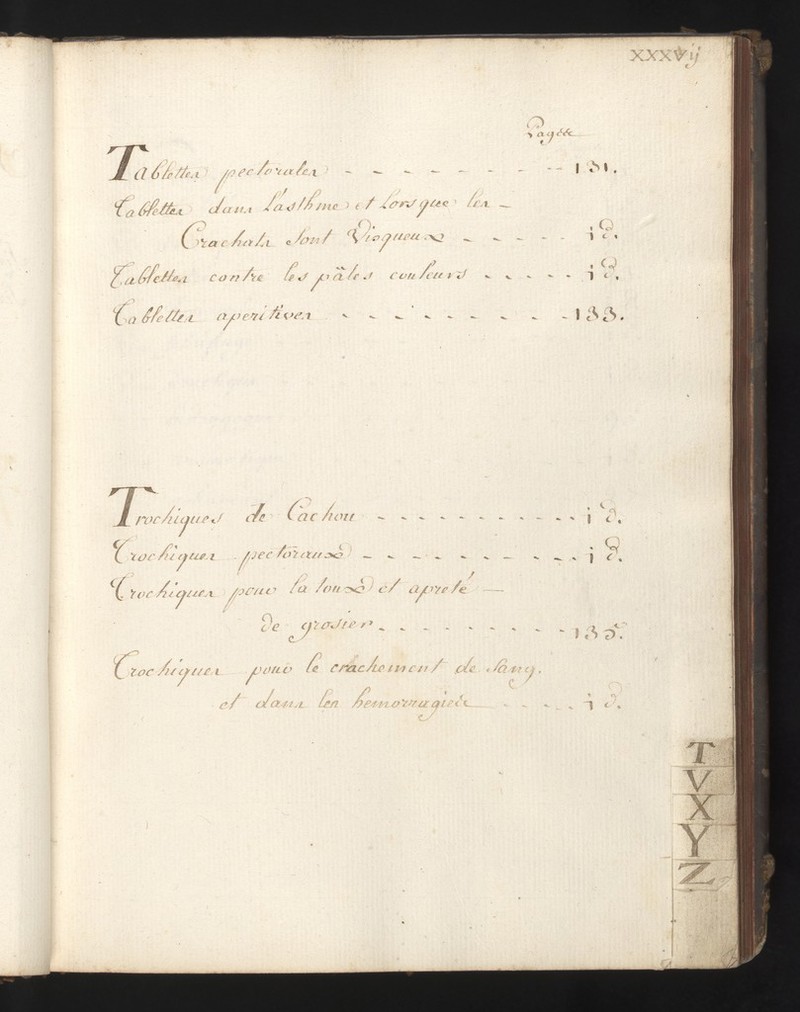 XXXVij
Pages
Tablettes pectorales - - - - - - - - - 131.
Tablettes dans L'asthme et Lorsque les -
Crachats sont Visqueux - - - - - id.
Tablettes contre les pâles couleurs - - - - - id.
Tablettes aperitives - - - - - - - - - 133.
Trochiques de Cachou - - - - - - - - - - id.
Trochiques pectoraux - - - - - - - - - id.
Trochiques pour la toux et apreté -
de grosier - - - - - - - - 135.
Trochiques pour le crachement de sang.
et dans les hemorragies - - - - id.
T
V
X
Y
Z